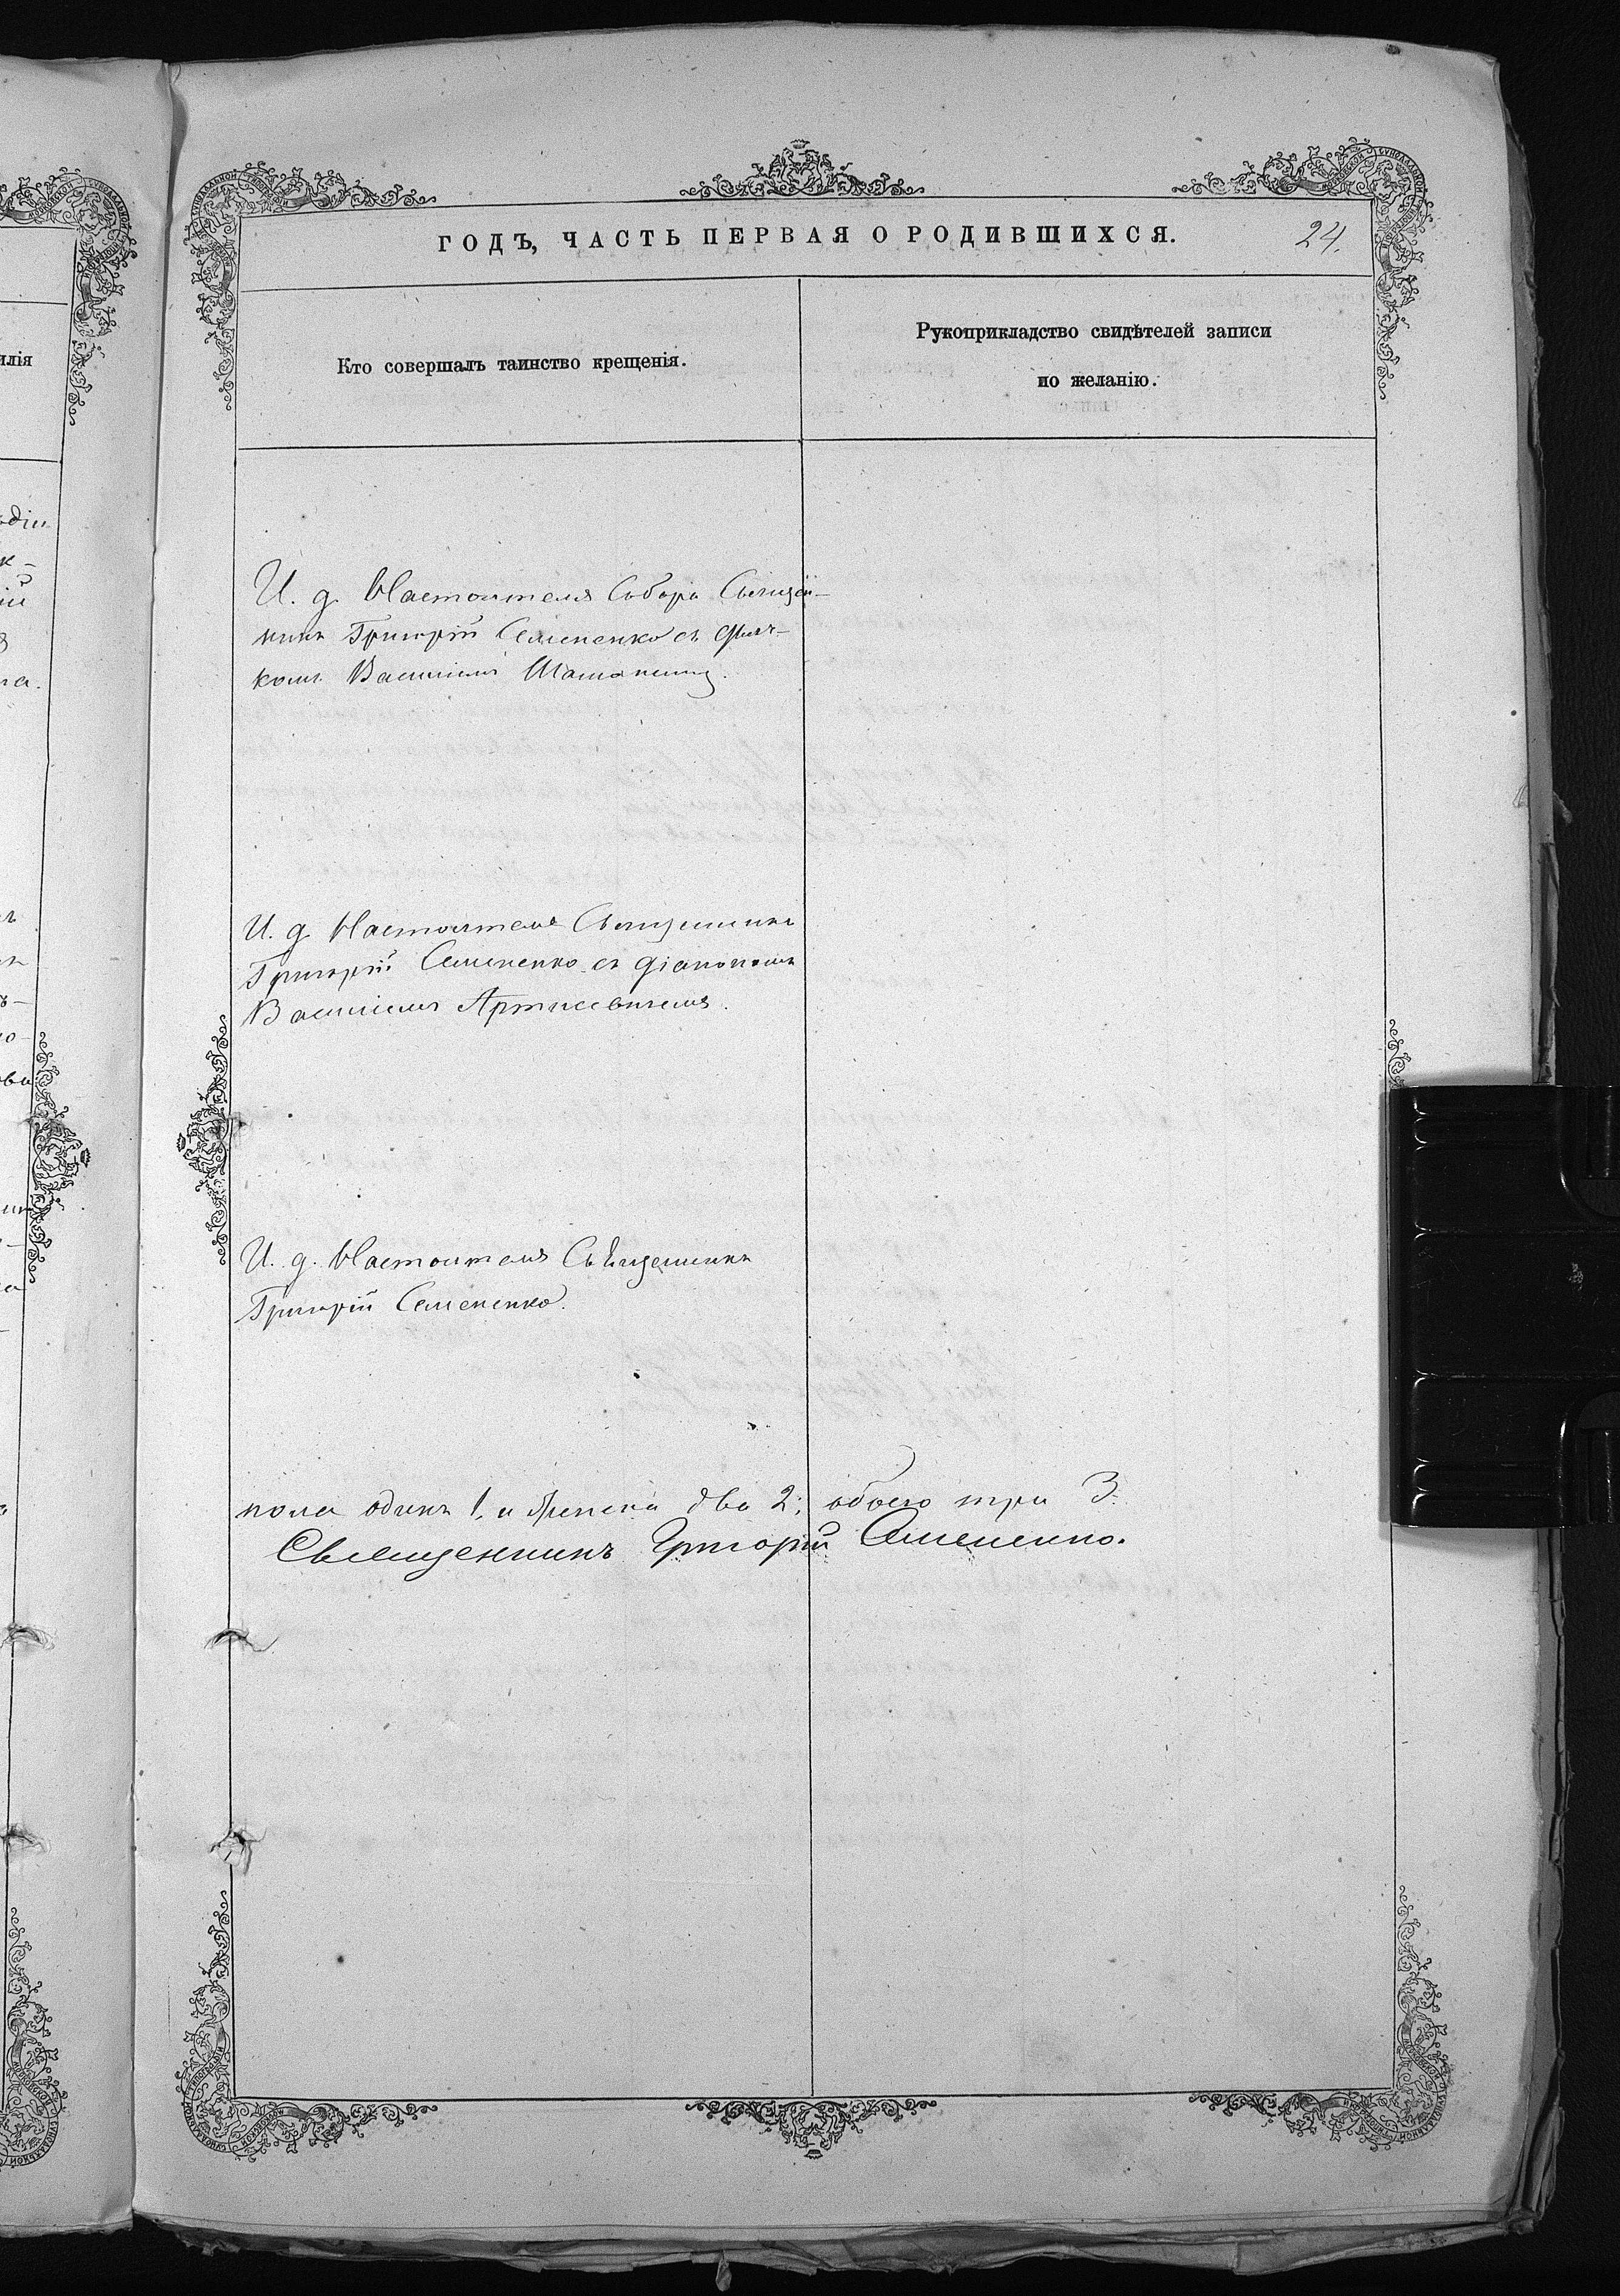 ГОДЪ, ЧАСТЬ ПЕРВАЯ О РОДИВШИХСЯ.
24.
Кто совершалъ таинство крещенія.
Рукоприкладство свидѣтелей записи
по желанію.
И. д. Настоятеля Собора Священ-
никъ Григорій Семененко съ дьяч-
комъ Василіемъ
И. д. Настоятеля Священникъ
Григорій Семененко съ діакономъ
Василіемъ Артисевичемъ.
И. д. Настоятеля Священникъ
Григорій Семененко.
пола одинъ 1, и женска два 2; обоего три 3.
Священникъ Григорій Семененко.
илія